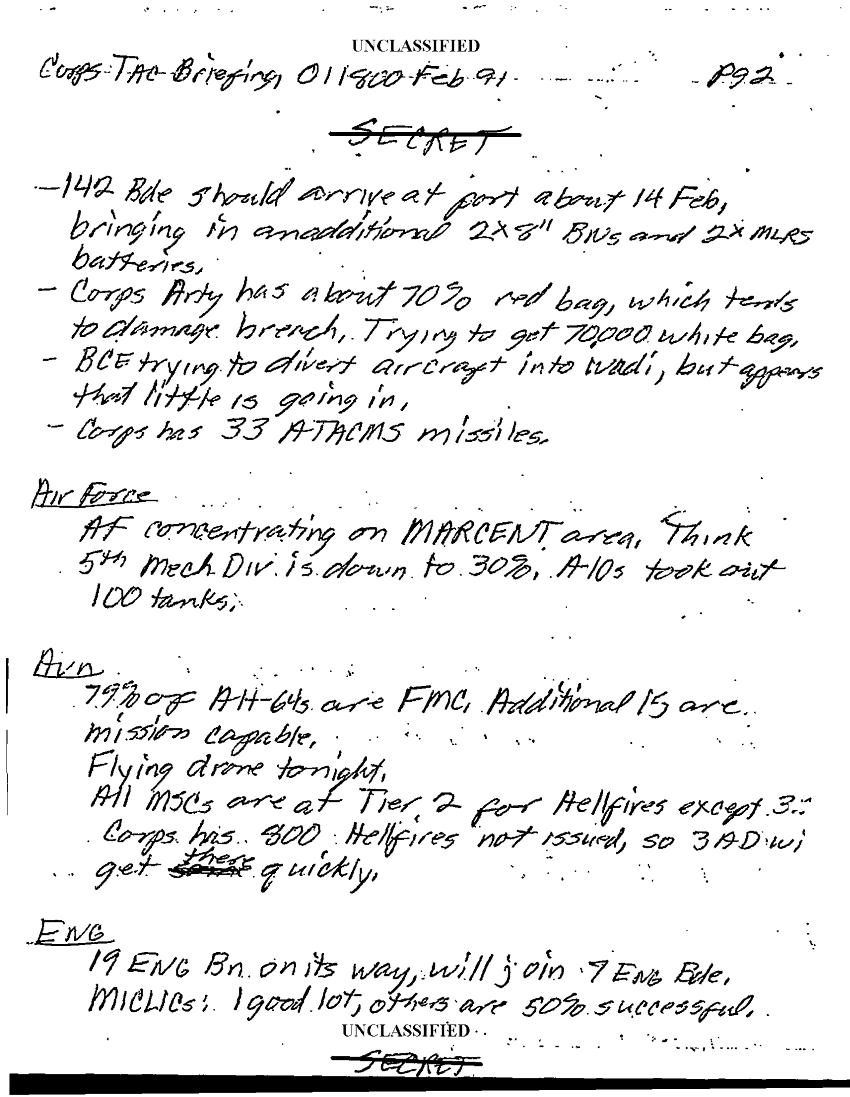 UNCLASSIFIED
Corps TAC Briefing, 011800 Feb 91 pg 2
SECRET
- 142 Bde should arrive at port about 14 Feb,
bringing in an additional 2x8" BNs and 2x MLRS
batteries.
- Corps Arty has about 70% red bag, which tends
to damage breach. Trying to get 70,000 white bag.
- BCE trying to divert aircraft into Wadi, but appears
that little is going in.
- Corps has 33 ATACMS missiles.
Air Force
AF concentrating on MARCENT area. Think
5th Mech Div is down to 30%. A-10s took out
100 tanks.
Avn
79% of AH-64s are FMC. Additional 15 are
mission capable.
Flying drone tonight.
All MSCs are at Tier 2 for Hellfires except 3
Corps has 800 Hellfires not issued, so 3AD wi
get there quickly.
ENG
19 ENG Bn on its way, will join 7 ENG Bde.
MICLICs: 1 good lot, others are 50% successful.
UNCLASSIFIED
SECRET